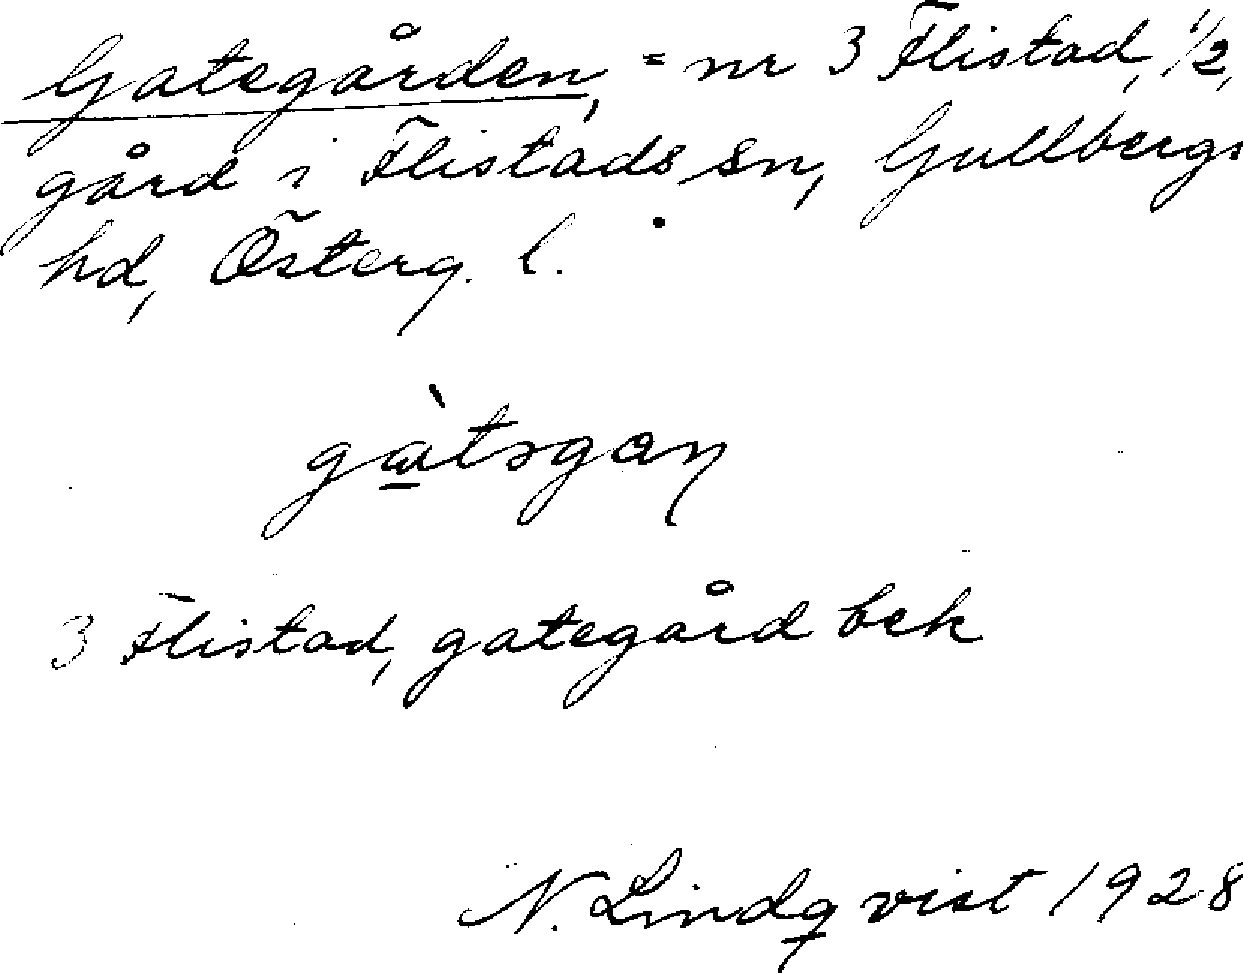 Gategården, = nr 3 Flistad, 1/2,
gård i Flistads sn, Gullbergs
hd, Österg. l.
gàtəgan
3 Flistad, gategård bek
N. Lindqvist 1928